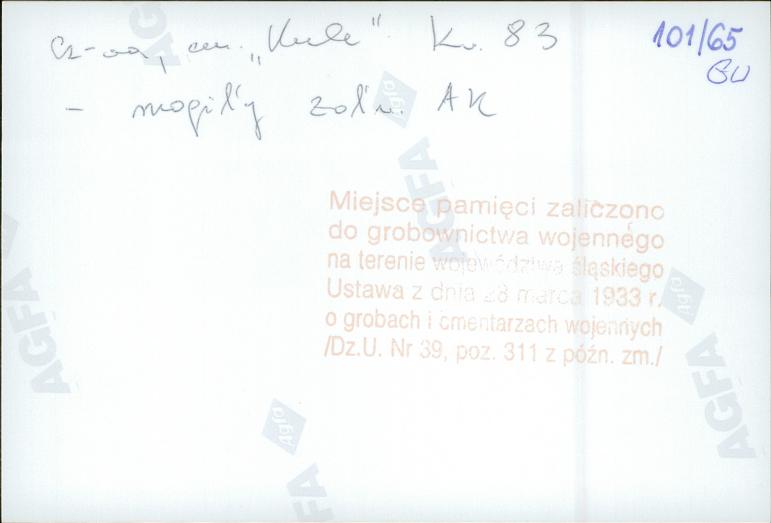 Cz-wa, cm. „Kule" Kw. 83
- mogiły żołn. AK
101/65
GW
Miejsce pamięci zaliczono
do grobownictwa wojennego
na terenie województwa śląskiego
Ustawa z dnia 28 marca 1933 r.
o grobach i cmentarzach wojennych
/Dz.U. Nr 39, poz. 311 z późn. zm./
AGFA
Agfa
AGFA
Agfa
AGFA
Agfa
AGFA